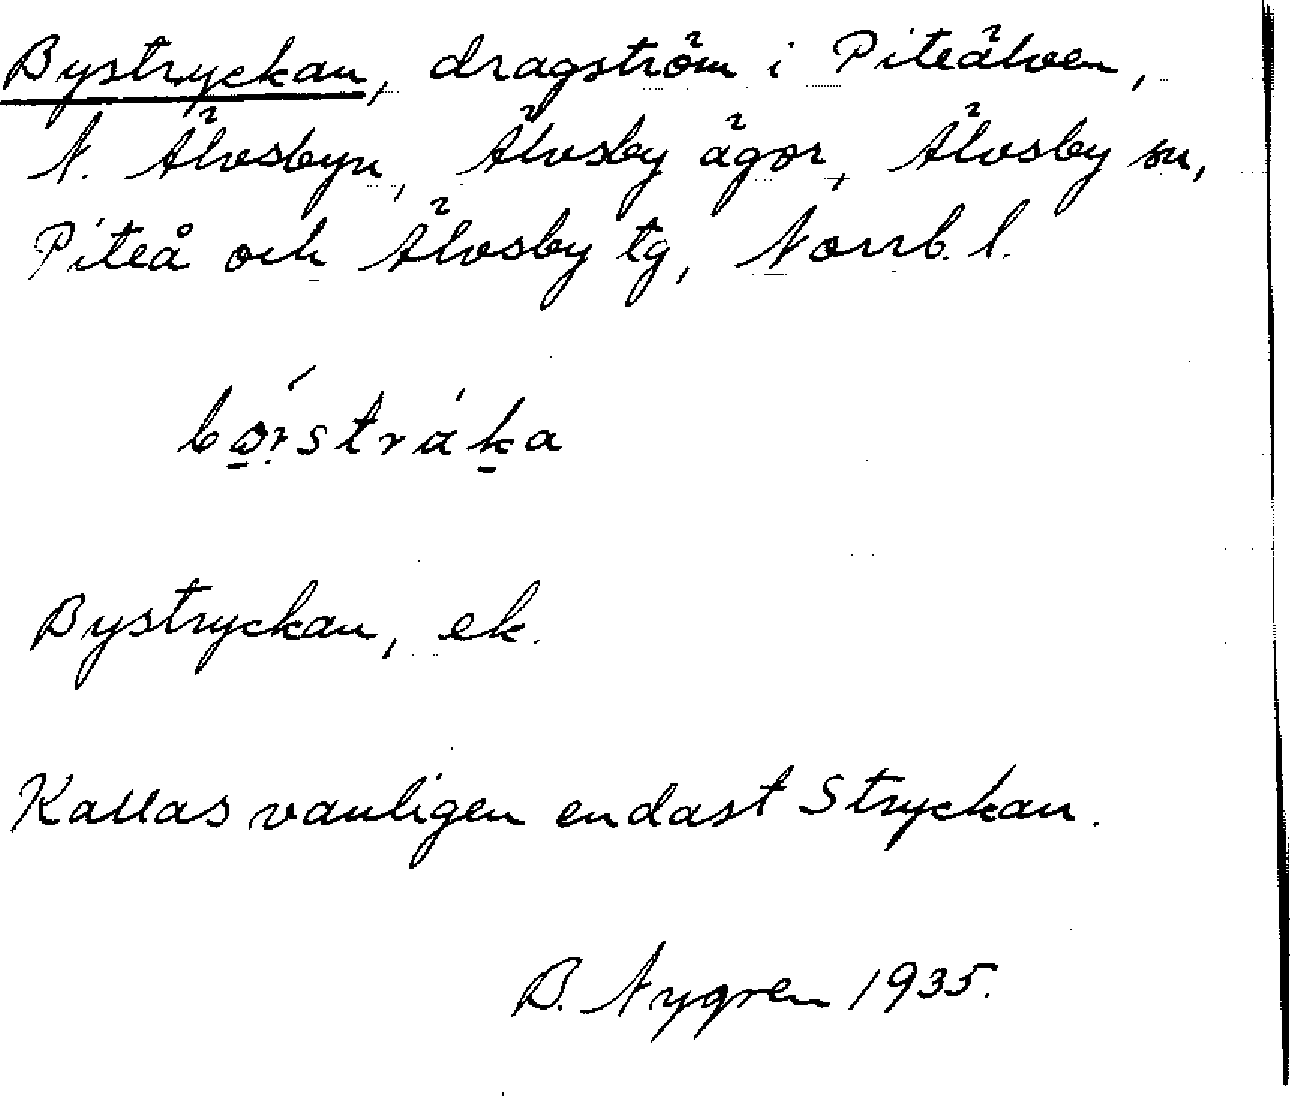 Bystryckan, dragström i Piteälven,
N. Älvsbyn, Älvsby ägor, Älvsby sn,
Piteå och Älvsby tg, Norrb. l.
Bystryckan, ek.
Kallas vanligen endast Stryckan.
B. Nygren 1935.